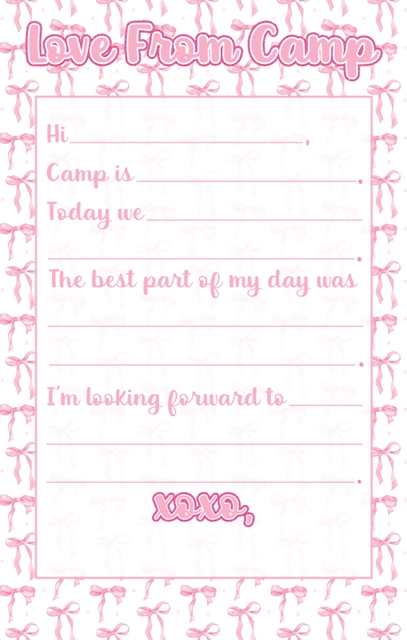 Love From Camp
Hi ,
Camp is .
Today we
.
The best part of my day was
.
I'm looking forward to
.
xoxo,